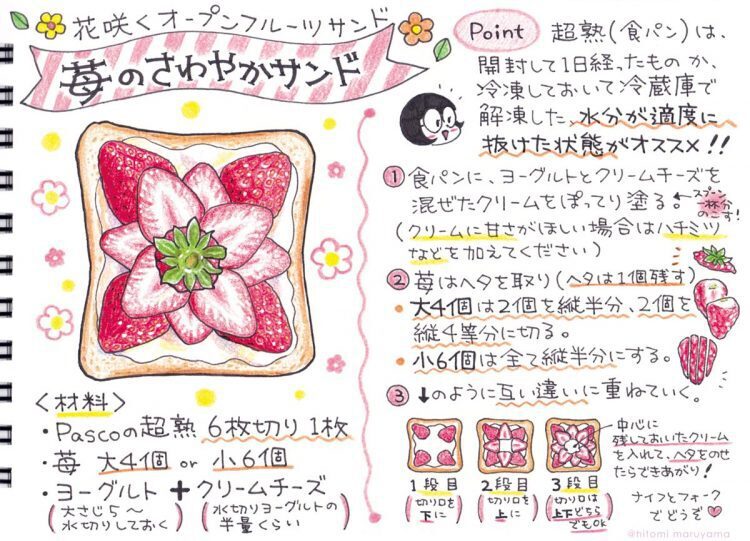 花咲くオープンフルーツサンド
苺のさわやかサンド
<材料>
・Pascoの超熟 6枚切り 1枚
・苺 大4個 or 小6個
・ヨーグルト + クリームチーズ
(大さじ5〜
水切りしておく)
(水切りヨーグルトの
半量くらい)
Point
超熟(食パン)は、
開封して1日経ったものか、
冷凍しておいて冷蔵庫で
解凍した、水分が適度に
抜けた状態がオススメ!!
① 食パンに、ヨーグルトとクリームチーズを
混ぜたクリームをぽってり塗る。
スプーン
一杯分
のこす!
(クリームに甘さがほしい場合はハチミツ
などを加えてください)
② 苺はヘタを取り(ヘタは1個残す)
・大4個は2個を縦半分、2個を
縦4等分に切る。
・小6個は全て縦半分にする。
③ ↓のように互い違いに重ねていく。
1段目
(切り口を
下に)
2段目
(切り口を
上に)
3段目
(切り口は
上下どちら
でもOK)
中心に
残しておいたクリーム
を入れて、ヘタをのせ
たらできあがり!
ナイフとフォーク
でどうぞ♥
@hitomi maruyama